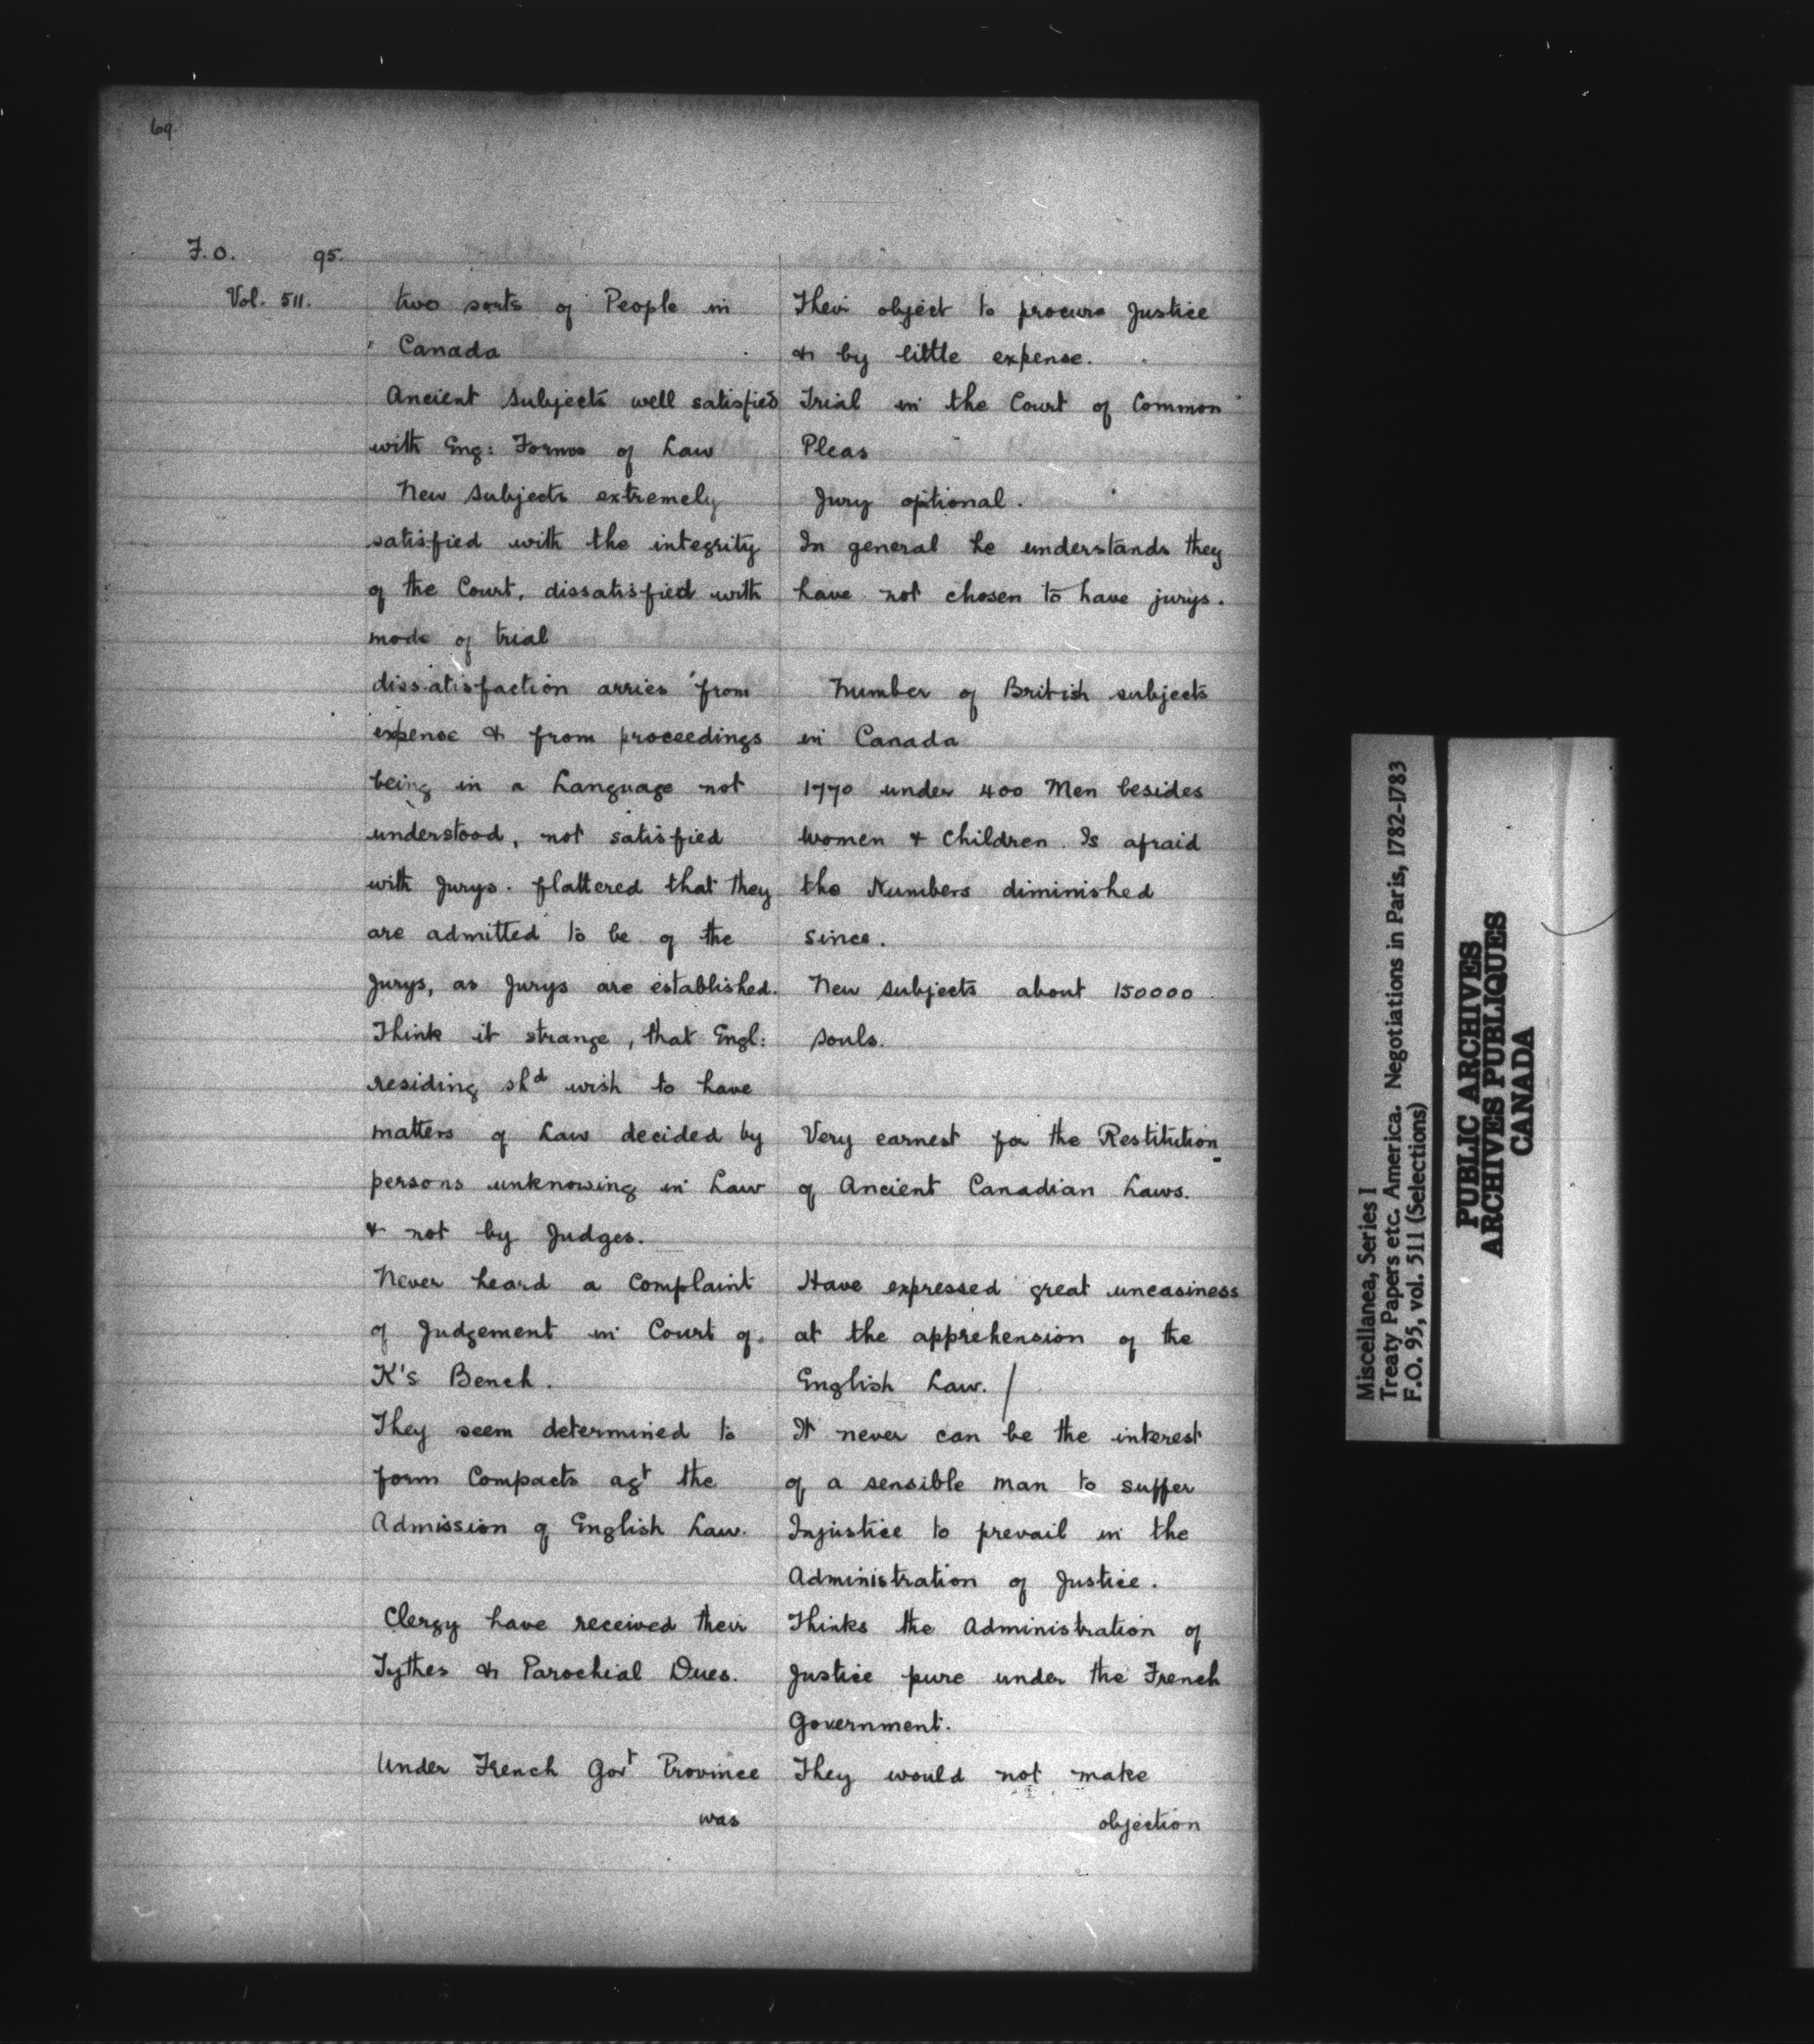 69.
F.O. 95.
Vol. 511.
two sorts of People in
" Canada
Ancient Subjects well satisfied
with Eng: Forms of Law
New Subjects extremely
satisfied with the integrity
of the Court, dissatisfied with
mode of trial
dissatisfaction arries from
expense & from proceedings
being in a Language not
understood, not satisfied
with Jurys. flattered that they
are admitted to be of the
Jurys, as Jurys are established.
Think it strange, that Engl:
residing shd wish to have
matters of Law decided by
persons unknowing in Law
& not by Judges.
Never heard a Complaint
of Judgement in Court of
K's Bench.
They seem determined to
form Compacts agt the
Admission of English Law.
Clergy have received their
Tythes & Parochial Dues.
Under French Govt Province
was
Their object to procure Justice
& by little expense.
Trial in the Court of Common
Pleas
Jury optional.
In general he understands they
have not chosen to have jurys.
Number of British subjects
in Canada
1770 under 400 Men besides
Women & Children. Is afraid
the Numbers diminished
since.
New Subjects about 150000
Souls.
Very earnest for the Restitution
of Ancient Canadian Laws.
Have expressed great uneasiness
at the apprehension of the
English Law. /
It never can be the interest
of a sensible man to suffer
Injustice to prevail in the
Administration of Justice.
Thinks the Administration of
Justice pure under the French
Government.
They would not make
objection
Miscellanea, Series I
Treaty Papers etc. America. Negotiations in Paris, 1782-1783
F.O. 95, vol. 511 (Selections)
PUBLIC ARCHIVES
ARCHIVES PUBLIQUES
CANADA